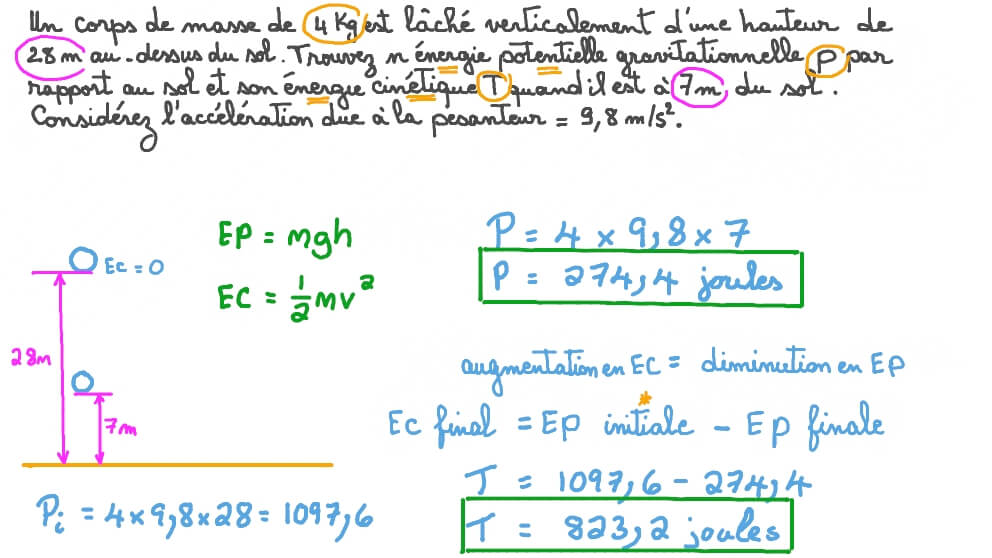 Un corps de masse de 4 Kg est lâché verticalement d'une hauteur de
28 m au-dessus du sol. Trouvez n énergie potentielle gravitationnelle P par
rapport au sol et son énergie cinétique T quand il est à 7m du sol.
Considérez l'accélération due à la pesanteur = 9,8 m/s².
EP = mgh
EC = 1/2 mv²
P = 4 × 9,8 × 7
P = 274,4 joules
Ec = 0
28m
7m
augmentation en EC = diminution en EP
*
Ec final = EP initiale - EP finale
T = 1097,6 - 274,4
T = 823,2 joules
Pi = 4 × 9,8 × 28 = 1097,6